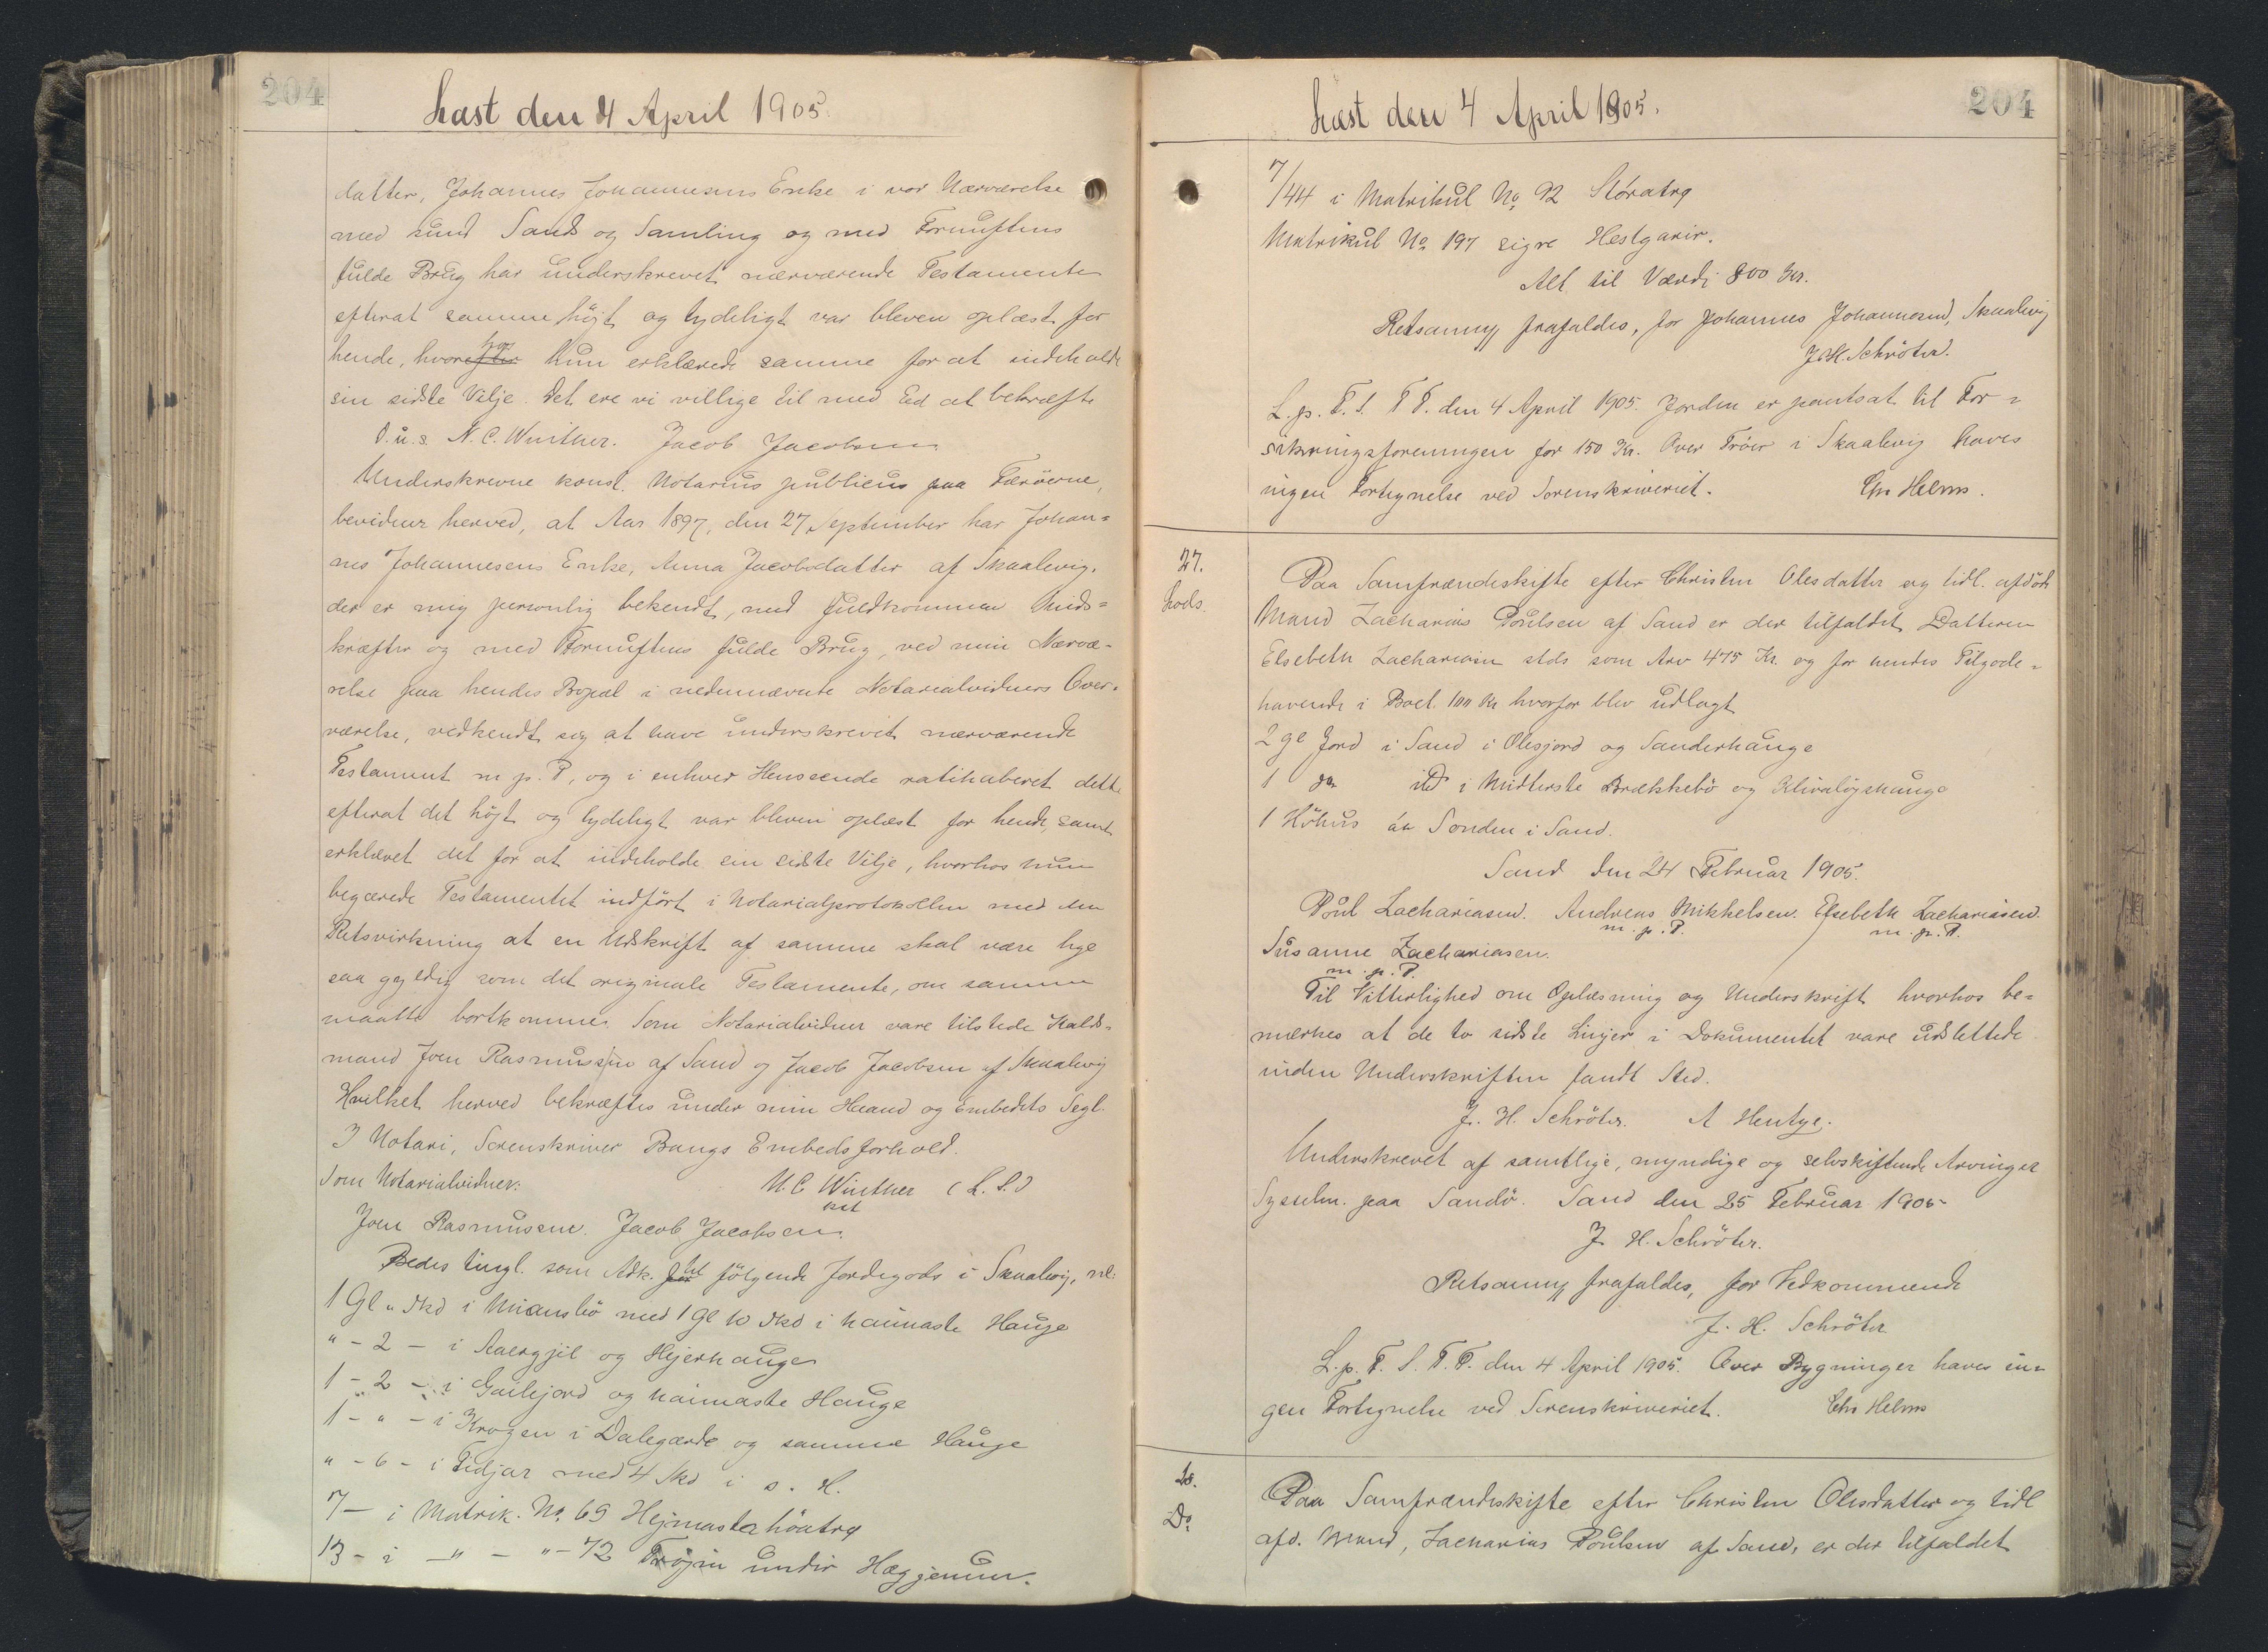 204
Læst den 4 April 1905.
datter, Johannes Johannesens Enke i vor Nærværelse
med sund Sands og Samling og med Fornuftens
fulde Brug har underskrevet nærværende Testamente
efterat samme højt og tydeligt var bleven oplæst for
hende, hvorhos hun erklærede samme for at indeholde
sin sidste Vilje. Det ere vi villige til med Ed at bekræfte
D.u.s. N. C. Winther. Jacob Jacobsen
Underskrevne konst. Notarius publicus paa Færöerne,
bevidner herved, at Aar 1897, den 27 September har Johan=
nes Johannesens Enke, Anna Jacobsdatter af Skaalevig,
der er mig personlig bekendt, med fuldkommen Sinds=
kræfter og med Fornuftens fulde Brug, ved min Nærvæ=
relse paa hendes Bopæl i nedennævnte Notarialvidners Over=
værelse, vedkendt sig at have underskrevet nærværende
Testament m. p. P., og i enhver Henseende ratihaberet dette
efterat det højt og tydeligt var bleven oplæst for hende, samt
erklæret det for at indeholde sin sidste Vilje, hvorhos hun
begærede Testamentet indført i Notarialprotokollen med den
Retsvirkning at en Udskrift af samme skal være lige
saa gyldig som det originale Testamente, om samme
maatte bortkomme. Som Notarialvidner vare tilstede Kalds=
mand Joen Rasmussen af Sand og Jacob Jacobsen af Skaalevig
Hvilket herved bekræftes under min Haand og Embedets Segl.
I Notari, Sorenskriver Bangs Embedsforhold.
Som Notarialvidner: N. C Winther (L. S.)
kst
Joen Rasmussen. Jacob Jacobsen.
Bedes tingl. som Adk. til følgende Jordegods i Skaalevig, nl:
1 Gl " Skd i Miansbö med 1 Gl 10 Skd i haimaste Hauge
" - 2 - i Aaergjil og Hejerhauge
1 - 2 - i Gailejord og haimaste Hauge
1 - " - i Krogen i Dalegærde og samme Hauge
" - 6 - i Tidjar med 4 Skd i s. H.
7 - i Matrik. No. 69 Hejmastahöatrø
13 - i -"- "- 72 Tröjin undir Hæggjenun.
Læst den 4 April 1905.
204
7/44 i Matrikul No. 92 Störatrø
Matrikul No. 197 Hestgarir.
Alt til Værdi 800 Kr.
Retsanmg frafaldes, for Johannes Johannesen, Skaalevig
J. H. Schröter.
L. p. F. S. T. P. den 4 April 1905. Jorden er pantsat til For=
sikringsforeningen for 150 Kr. Over Tröer i Skaalevig haves
ingen Fortegnelse ved Sorenskriveriet. Chr Helms.
27.
Lods.
Paa Samfrændeskifte efter Christen Olesdatter og tidl. afdöde
Mand Zacharias Poulsen af Sand er der tilfaldet Datteren
Elsebeth Zachariasen stds som Arv 475 Kr. og for hendes Tilgode=
havende i Boet 100 Kr hvorfor blev udlagt
2 gl Jord i Sand i Olesjord og Sanderhauge
1 do itd i Midterste Brækkebö og Klivalöjshauge
1 Höhus áv Sonden i Sand.
Sand den 24 Februar 1905.
Poul Zachariasen. Andreas Mikkelsen. Elsebeth Zachariasen.
m. p. P. m. p. P.
Susanne Zachariasen.
m. p. P.
Til Vitterlighed om Oplæsning og Underskrift hvorhos be=
mærkes at de to sidste Linjer i Dokumentet vare udslettede
inden Underskriften fandt Sted.
J. H. Schröter. A Hentze.
Underskrevet af samtlige, myndige og selvskiftende Arvinger
Sysselm. paa Sandö. Sand den 25 Februar 1905
J. H. Schröter.
Retsanmg frafaldes, for Vedkommende
J. H. Schröter
L. p. F. S. T. P. den 4 April 1905. Over Bygninger haves in=
gen Fortegnelse ved Sorenskriveriet. Chr Helms
28.
Do.
Paa Samfrændeskifte efter Christen Olesdatter og tidl
afd. Mand, Zacharias Poulsen af Sand, er der tilfaldet